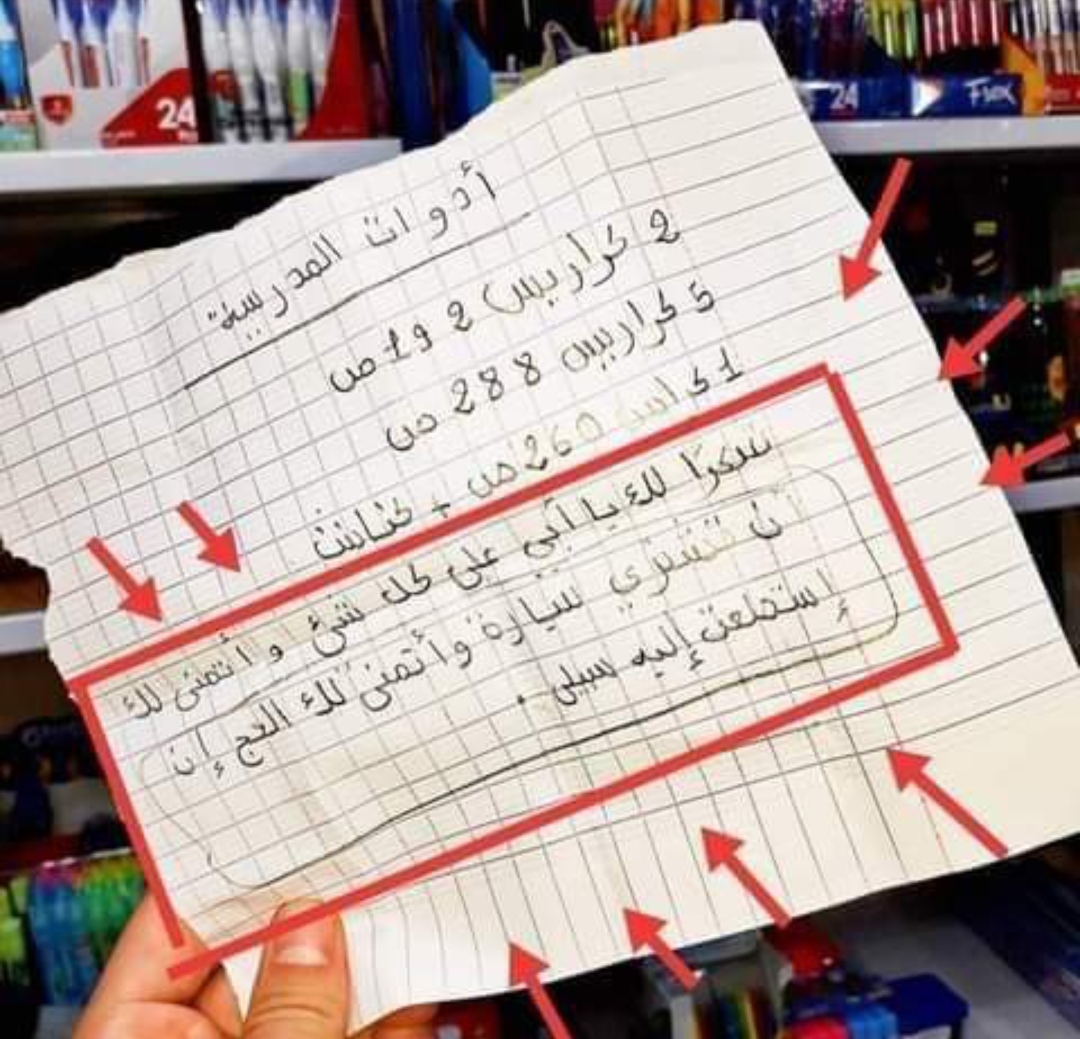 أدوات المدرسية
2 كراريس 2 و1 ص
5 كراريس 288 ص
1 كراس 260 ص + كناش
شكرًا لك يا أبي على كل شئ و أتمنى لك
أن تشتري سيارة وأتمنى لك الحج إن
إستطعت إليه سبيلى .
24
24